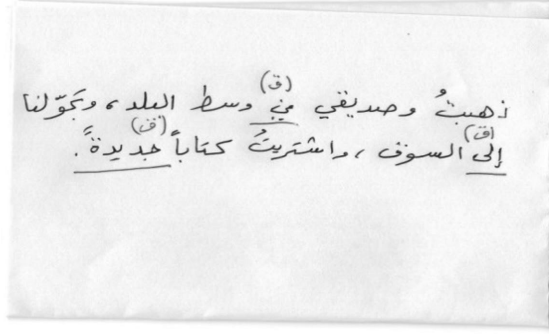 ذهبتُ وصديقي في (ق) وسط البلد، وتجوّلنا
إلى (ق) السوق، واشتريتُ كتاباً جديدةً (ق).